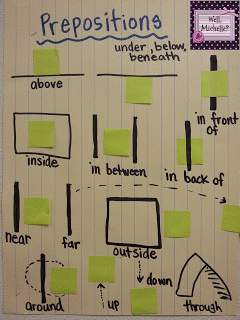 Prepositions
Well, Michelle?
under, below,
beneath
above
in front
of
inside
in between
in back of
near
far
outside
down
around
up
through